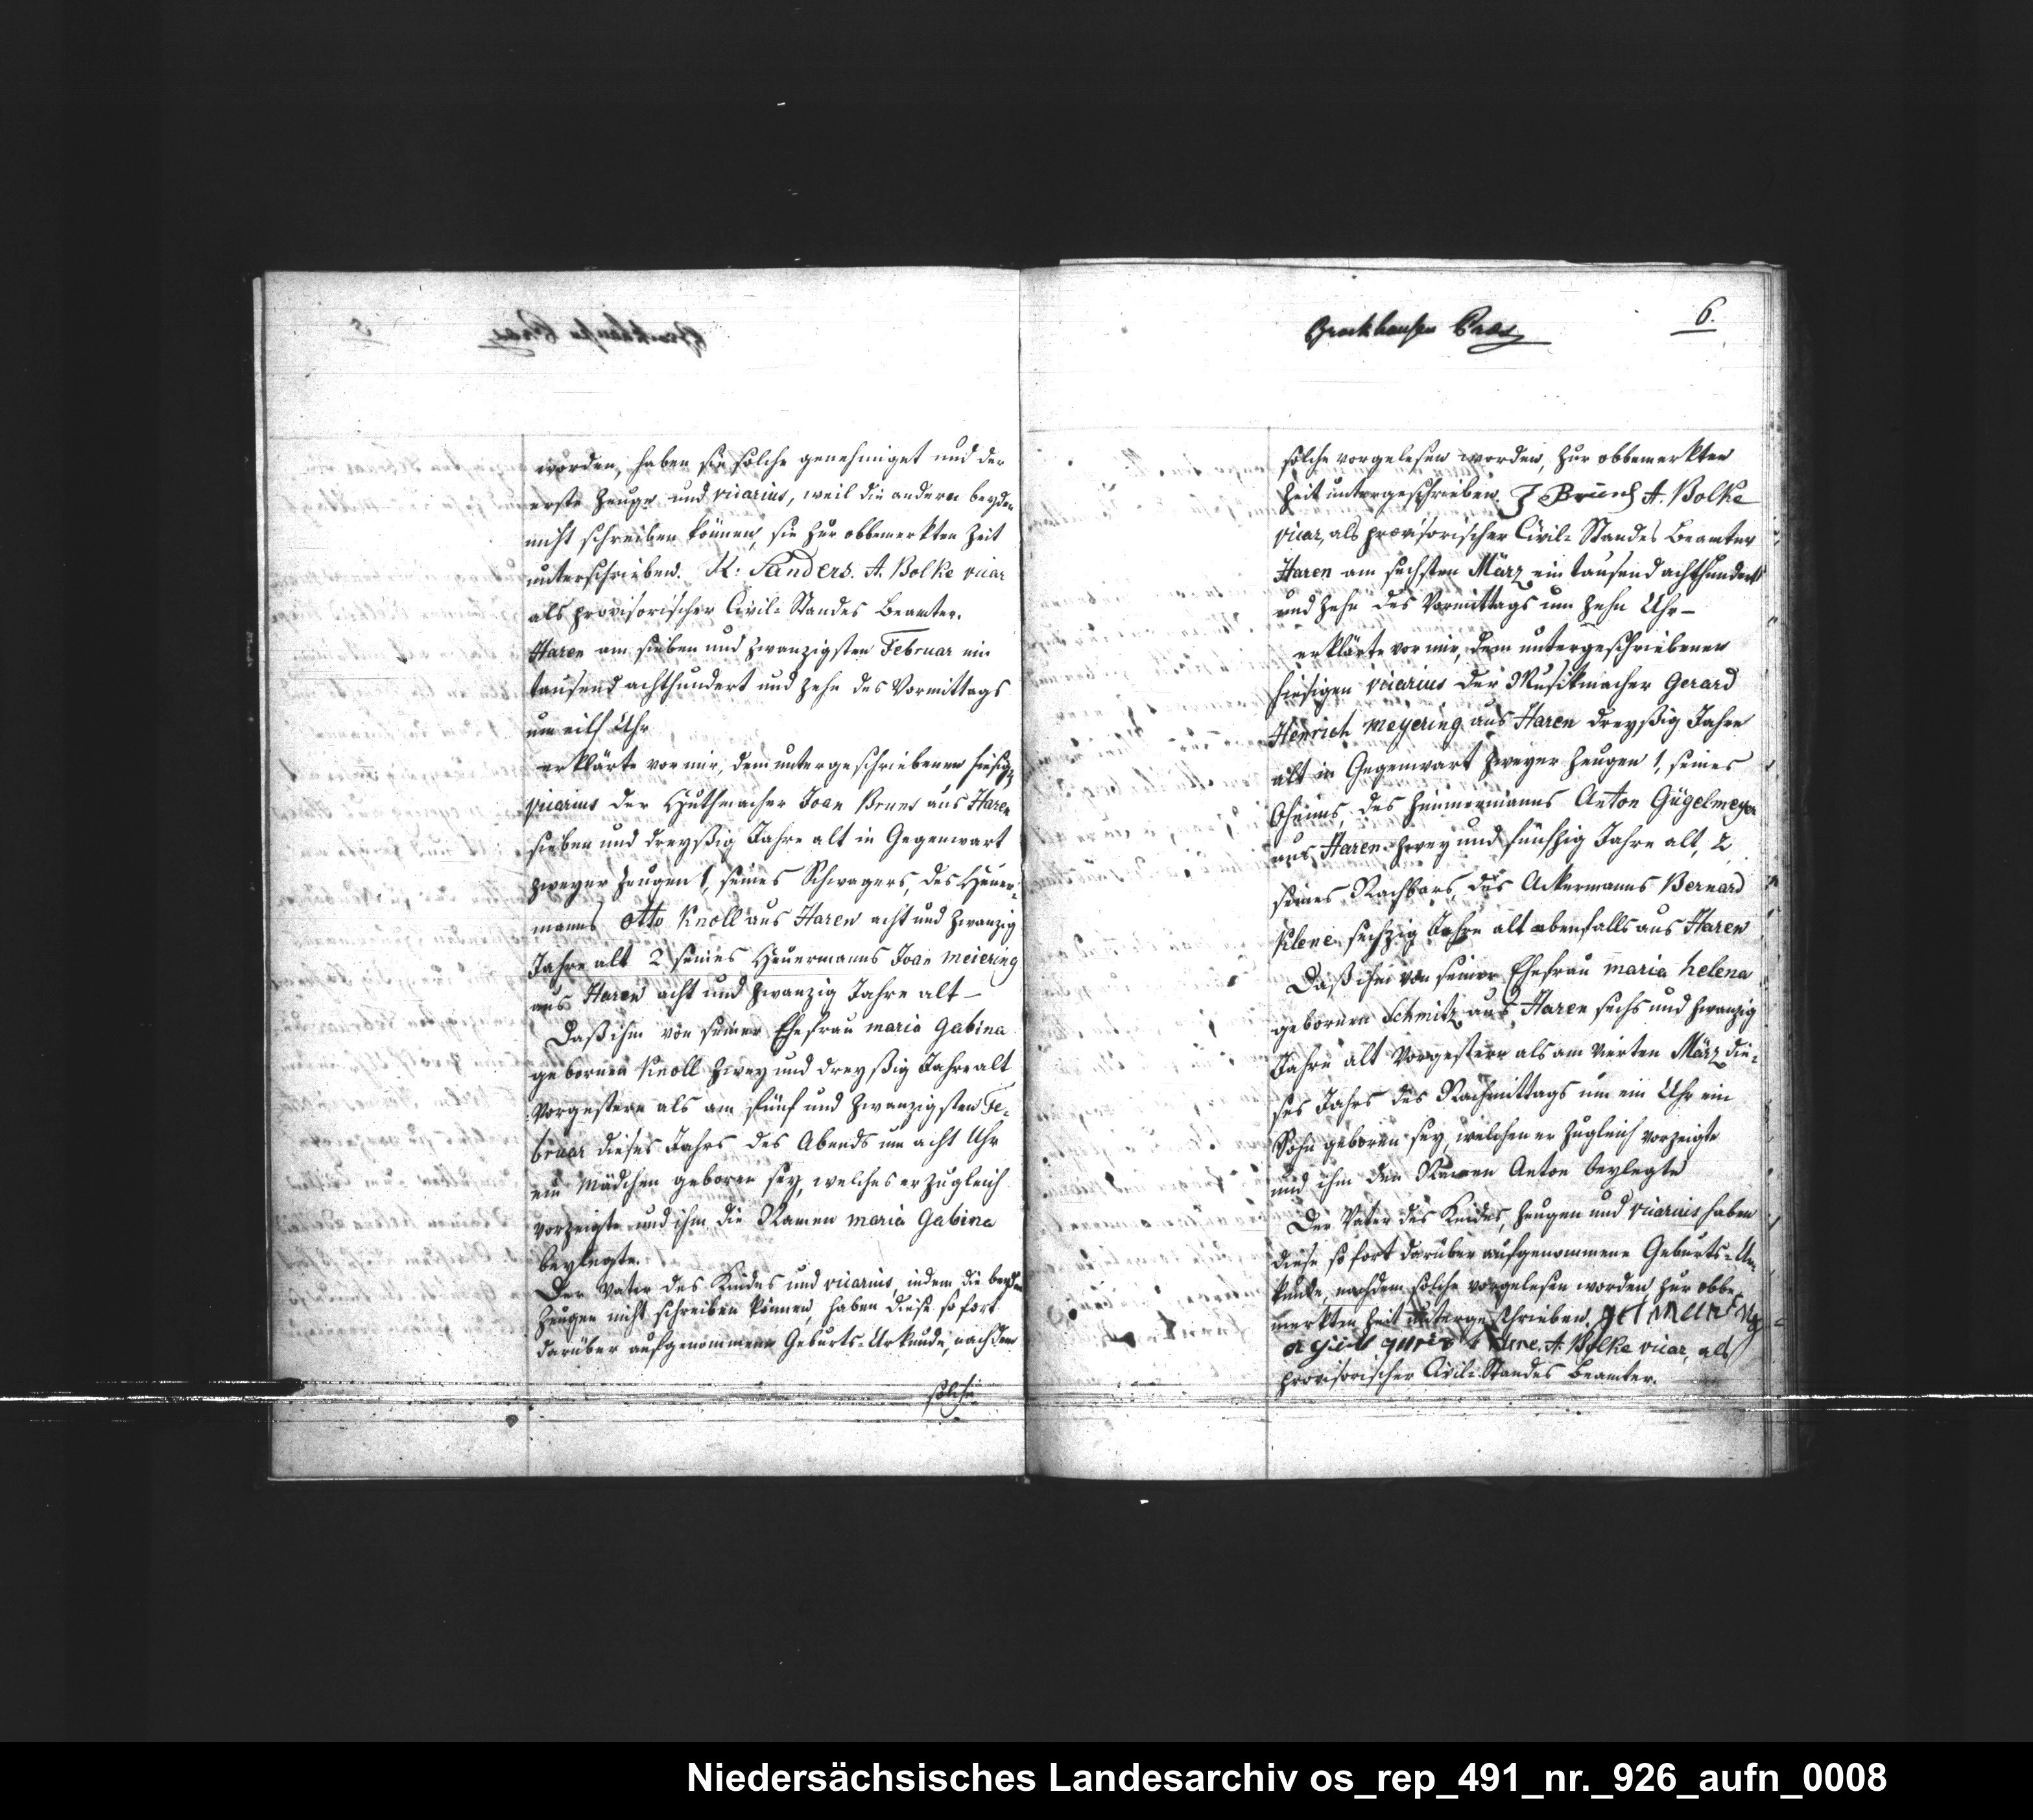 worden, haben sie solche genehmiget und der
erste Zeuge und vicarius, weil die andern beyden
nicht schreiben können, sie zur obbemerkten Zeit
unterschrieben. H: Sanders. A. Bolke vicar
als provisorischer Civil-Standes Beamter.
Haren am sieben und zwanzigsten Februar ein
tausend achthundert und zehn des Vormittags
um eilf Uhr
erklärte vor mir, dem untergeschriebenen hiesig.
vicarius der Huthmacher Joan Bruns aus Haren
sieben und dreyßig Jahre alt in Gegenwart
zweyer Zeugen 1, seines Schwagers, des Heuer-
manns Otto Knoll aus Haren acht und zwanzig
Jahre alt 2 seines Heuermanns Joan meiering
aus Haren acht und zwanzig Jahre alt –
Daß ihm von seiner Ehefrau maria Gabina
gebornen Knoll zwey und dreyßig Jahre alt
Vorgestern als am fünf und zwanzigsten Fe-
bruar dieses Jahrs des Abends um acht Uhr
ein Mädchen geboren sey, welches er zugleich
vorzeigte und ihm die Namen maria Gabina
beylegte.
Der Vater des Kindes und vicarius, indem die beyden
Zeugen nicht schreiben können, haben diese so fort
darüber aufgenommene Geburts-Urkunde, nachdem
solche
Brockhausen Praes
6.
solche vorgelesen worden, zur obbemerkten
Zeit untergeschrieben. J Bruns A. Bolke
vicar, als provisorischer Civil-Standes Beamter
Haren am sechsten März ein tausend achthundert
und zehn des Vormittags um zehn Uhr –
erklärte vor mir, dem untergeschriebenen
hiesigen vicarius der Musikmacher Gerard
Henrich meyering aus Haren dreyßig Jahre
alt in Gegenwart zweyer Zeugen 1, seines
Oheims, des Zimmermanns Anton Gügelmeyer
aus Haren zwey und funfzig Jahre alt, 2
seines Nachbars, des Ackermanns Bernard
Klene sechzig Jahre alt ebenfalls aus Haren
Daß ihm von seiner Ehefrau maria helena
gebornen Schmitz aus Haren sechs und zwanzig
Jahre alt Vorgestern als am vierten März die-
ses Jahrs des Nachmittags um ein Uhr ein
Sohn geboren sey, welchen er zugleich vorzeigte
und ihm den Namen Anton beylegte
Der Vater des Kindes, Zeugen und vicarius haben
diese so fort darüber aufgenommene Geburts-Ur-
kunde, nachdem solche vorgelesen worden, zur obbe
merkten Zeit untergeschrieben.
A. Bolke vicar, als
provisorischer Civil-Standes Beamter.
Niedersächsisches Landesarchiv os_rep_491_nr._926_aufn_0008